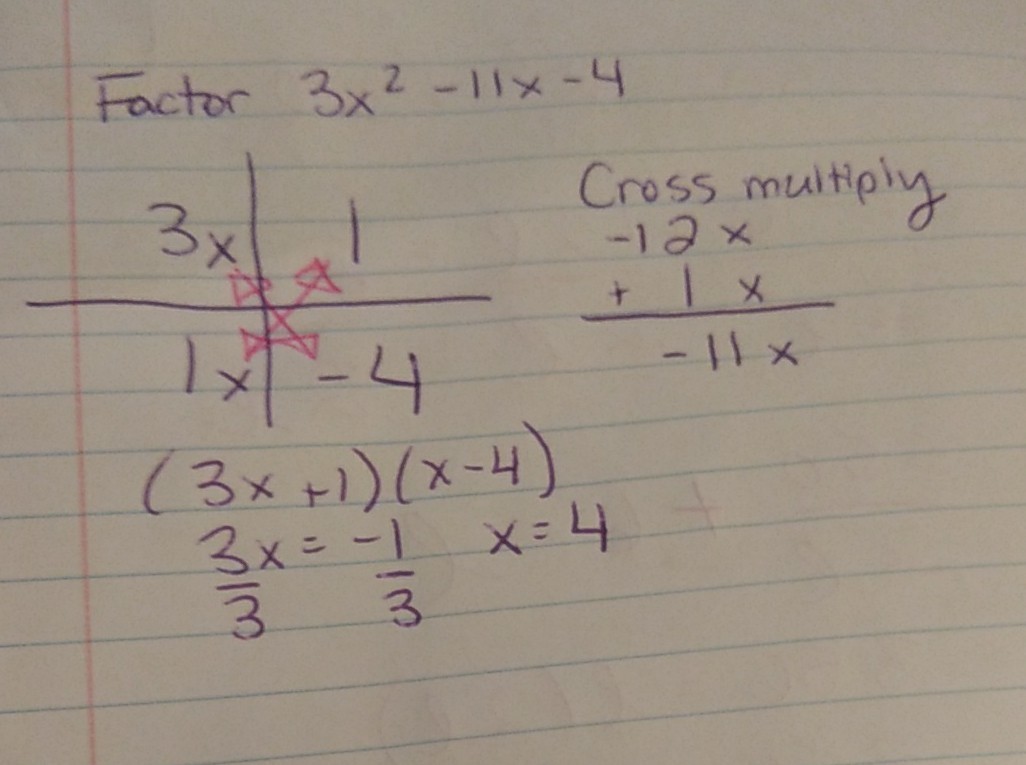 Factor 3x² -11x -4
3x 1
1x -4
Cross multiply
-12x
+ 1x
-11x
(3x +1)(x-4)
3x = -1 x=4
3 3